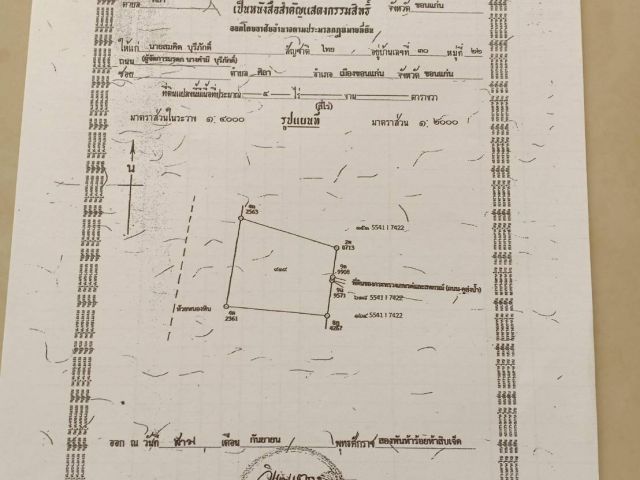 ตำบล ศิลา
จังหวัด ขอนแก่น
เป็นหนังสือสำคัญแสดงกรรมสิทธิ์
ออกโดยอาศัยอำนาจตามประมวลกฎหมายที่ดิน
ให้แก่ นายสมคิด บุริภักดิ์ สัญชาติ ไทย อยู่บ้านเลขที่ ๓๐ หมู่ที่ ๒๒
ถนน (ผู้จัดการมรดก นางคำมี บุริภักดิ์)
ซอย ตำบล ศิลา อำเภอ เมืองขอนแก่น จังหวัด ขอนแก่น
ที่ดินแปลงนี้มีเนื้อที่ประมาณ ๔ ไร่ งาน ตารางวา
(สี่ไร่)
มาตราส่วนในระวาง ๑: ๔๐๐๐ รูปแผนที่ มาตราส่วน ๑: ๒๐๐๐
น
2563
5541 I 7422
6713
9908
9571
5541 I 7422
ห้วยหนองหิน
2361
4267
5541 I 7422
ออก ณ วันที่ สาม เดือน กันยายน พุทธศักราช สองพันห้าร้อยห้าสิบเจ็ด